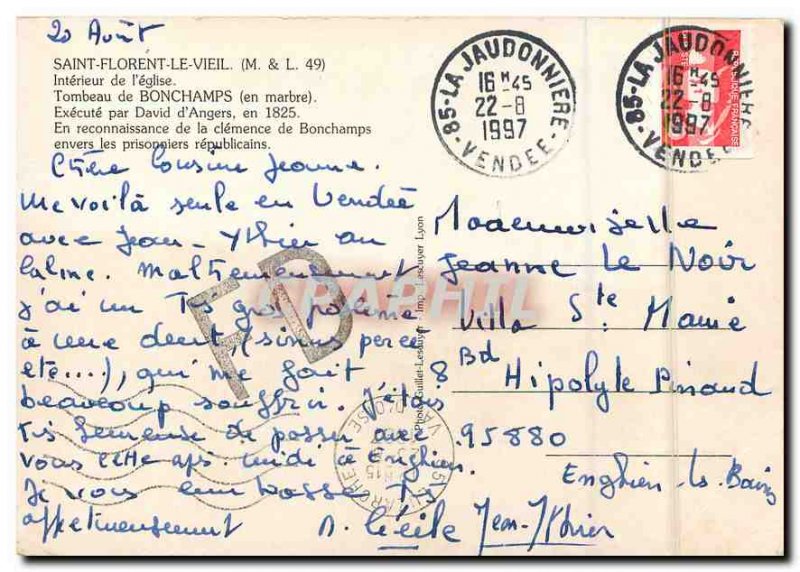 20 Août
SAINT-FLORENT-LE-VIEIL. (M. & L. 49)
Intérieur de l'église.
Tombeau de BONCHAMPS (en marbre).
Exécuté par David d'Angers, en 1825.
En reconnaissance de la clémence de Bonchamps
envers les prisonniers républicains.
Chère Cousine Jeanne.
Me voilà seule en Vendée
avec Jean-Ythier au
calme. Malheureusement
j'ai un Ts gros problème
à une dent, (sinus percé
etc....), qui me fait
beaucoup souffrir. J'étais
Ts heureuse de passer avec
vous cette après midi à Enghien.
Je vous embrasse Ts
affectueusement
Cécile Jean-Ythier
85-LA JAUDONNIERE-
16 H 45
22-8
1997
VENDEE
85-LA JAUDONNIERE
16 H 45
22-8
1997
VENDEE
REPUBLIQUE FRANÇAISE
Mademoiselle
Jeanne Le Noir
Villa Ste Marie
8 Bd Hipolyte Pinaud
95880
Enghien-les-Bains
Photo Guillet-Lescuyer - Imp. Lescuyer Lyon
FD
DELCAMPHIL